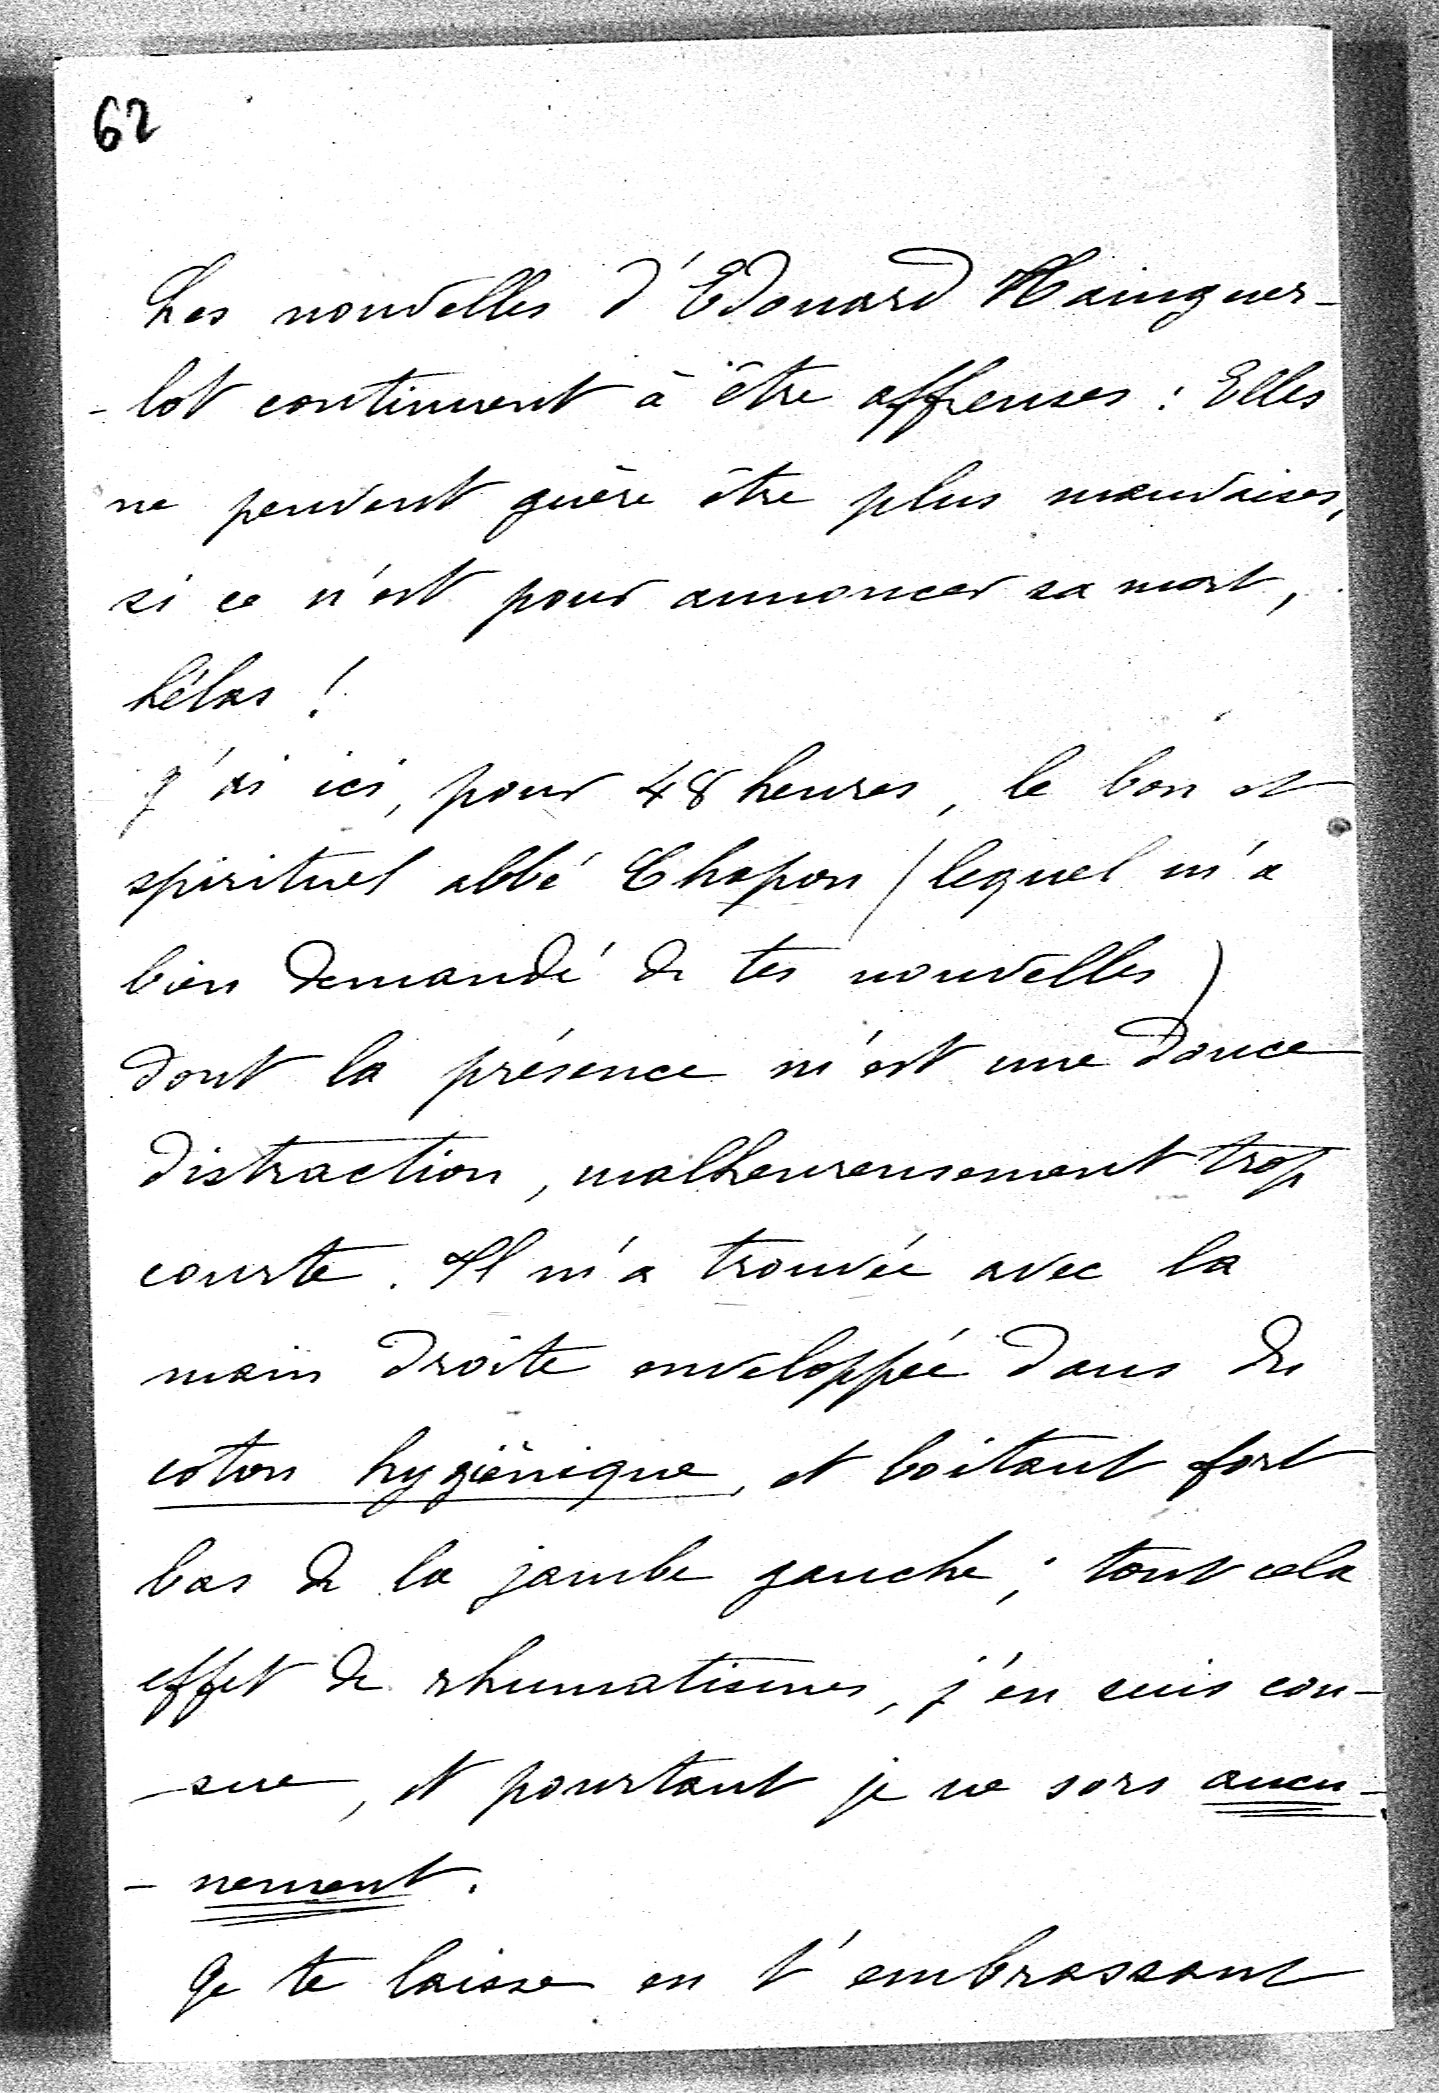 62
Les nouvelles d'Edouard Hainguer-
-lot continuent à être affreuses : Elles
ne peuvent guère être plus mauvaises,
si ce n'est pour annoncer sa mort,
hélas !
J'ai ici, pour 48 heures, le bon et
spirituel abbé Chapon (lequel m'a
bien demandé de tes nouvelles)
dont la présence m'est une douce
distraction, malheureusement trop
courte. Il m'a trouvée avec la
main droite enveloppée dans du
coton hygiènique, et boitant fort
bas de la jambe gauche ; tout cela
effet de rhumatismes, j'en suis con-
-sue, et pourtant je ne sors aucu-
-nement.
Je te laisse en t'embrassant